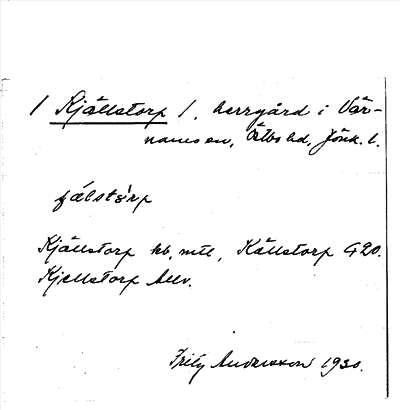 / Kjällstorp /, herrgård i Vär-
namo sn, Östbo hd, Jönk. l.
Kjällstorp kb, mtl, Källstorp G20.
Kjellstorp
Andersson 1930.